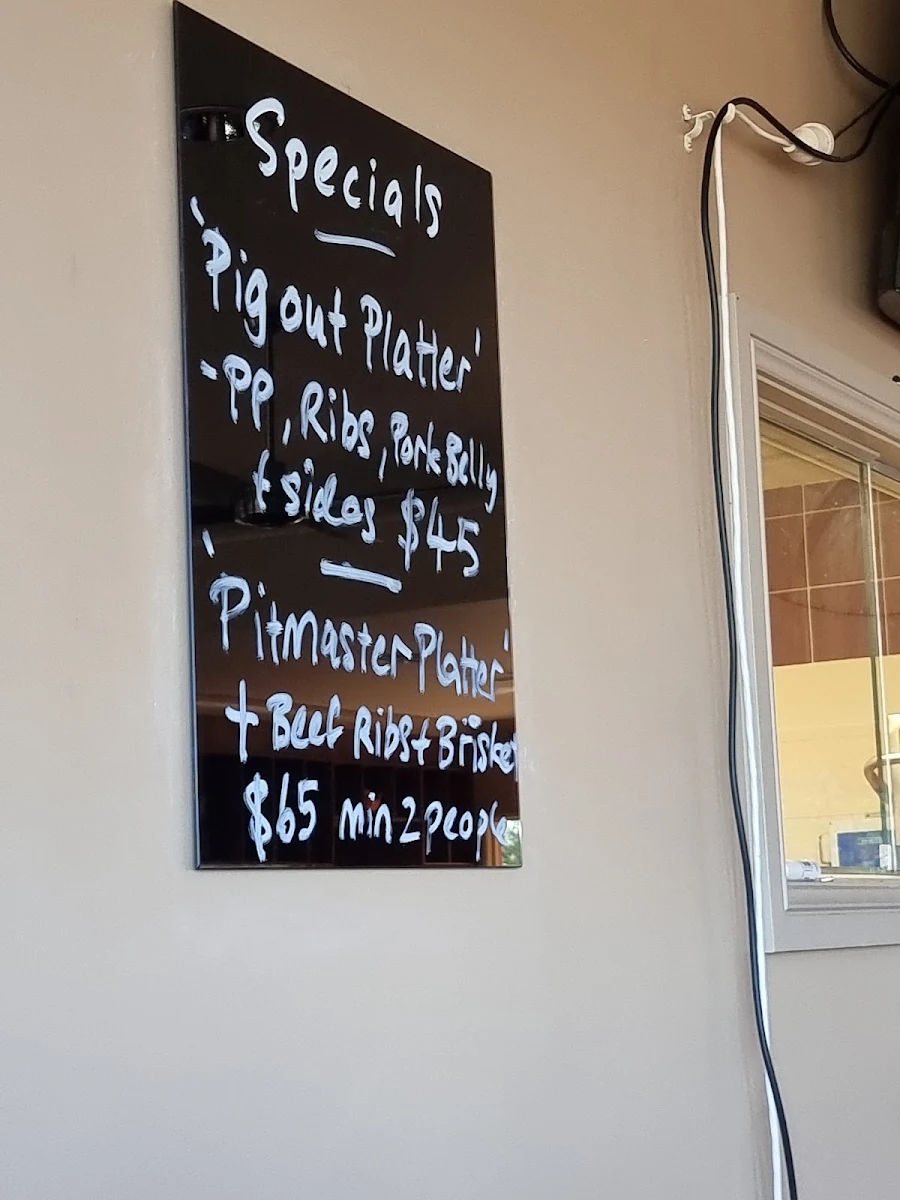 Specials
'Pig out Platter'
- PP, Ribs, Pork Belly
+ sides $45
'Pitmaster Platter'
+ Beef Ribs + Brisket
$65 min 2 people